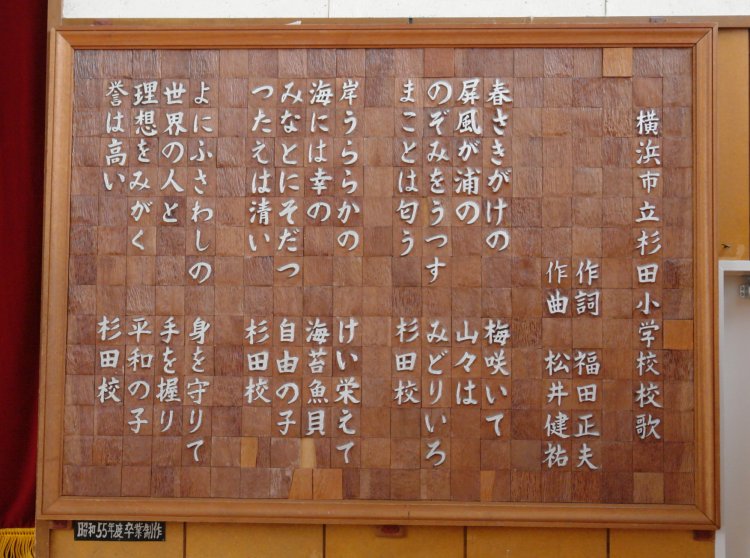 横浜市立杉田小学校校歌
作詞 福田正夫
作曲 松井健祐
春さきがけの 梅咲いて
屏風が浦の 山々は
のぞみをうつす みどりいろ
まことは匂う 杉田校
岸うららかの けい栄えて
海には幸の 海苔魚貝
みなとにそだつ 自由の子
つたえは清い 杉田校
よにふさわしの 身を守りて
世界の人と 手を握り
理想をみがく 平和の子
誉は高い 杉田校
昭和55年度卒業制作